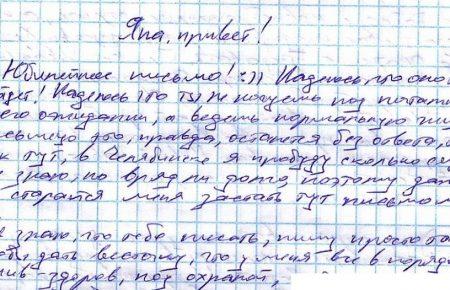 Яна, привет!
Юбилейное письмо! :)) Надеюсь, что оно
дет! Надеюсь что ты не ночуешь под почтам
его ожидании, а ведешь нормальную жи
это, правда, останется без ответа,
к тут, в Челябинске я пробуду сколько ещ
е знаю, но вряд ли долго, поэтому да
старатся меня застать тут письмом
е знаю, что тебе писать, пишу просто та
бы дать весточку, что у меня все в поряд
жив здоров, под охраной,